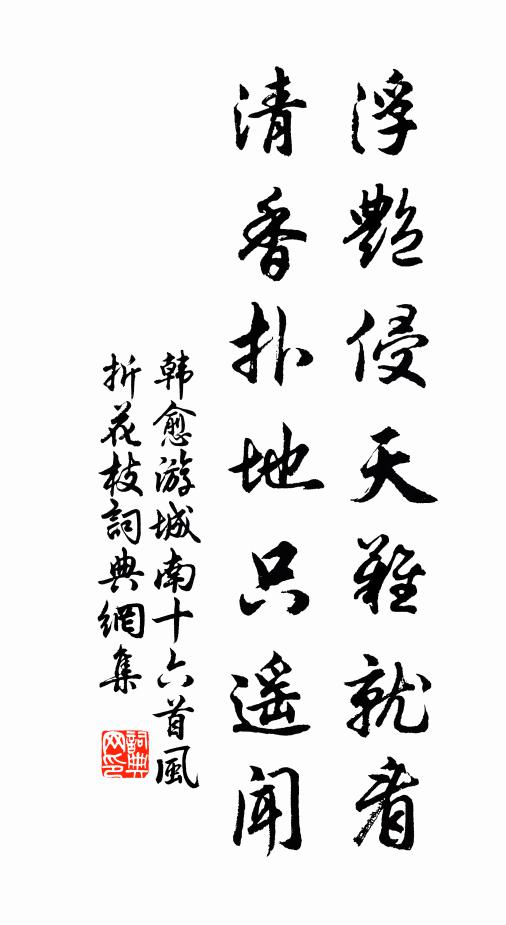 浮艷侵天難就看
清香扑地只遥聞
韩愈游城南十六首風
折花枝詞典網集
詞典网印